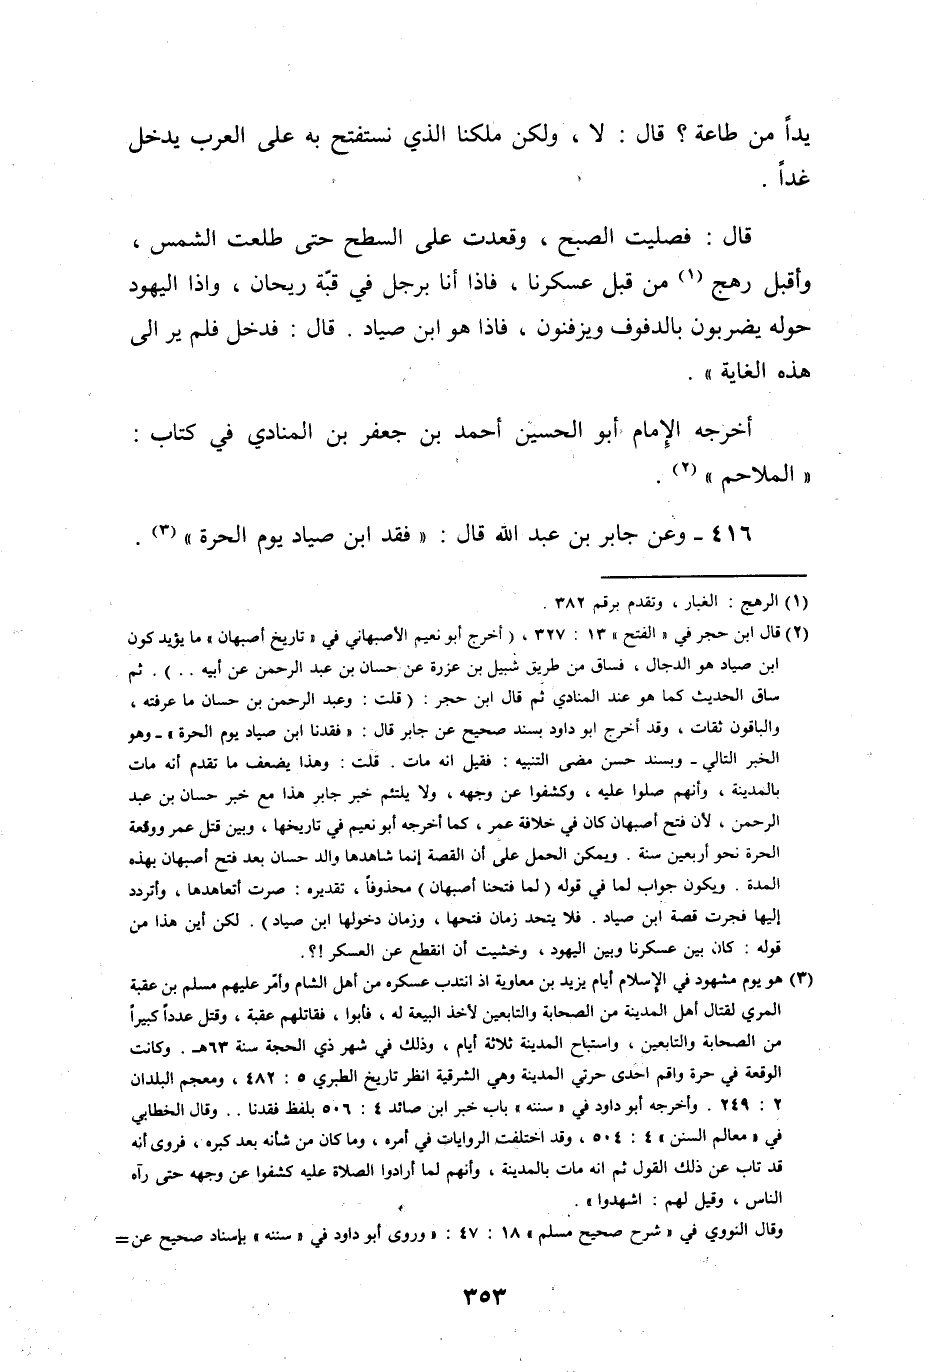 يداً من طاعة ؟ قال : لا ، ولكن ملكنا الذي نستفتح به على العرب يدخل
غداً .
قال : فصليت الصبح ، وقعدت على السطح حتى طلعت الشمس ،
وأقبل رهج (١) من قبل عسكرنا ، فاذا أنا برجل في قبّة ريحان ، واذا اليهود
حوله يضربون بالدفوف ويزفنون ، فاذا هو ابن صياد . قال : فدخل فلم ير الى
هذه الغاية » .
أخرجه الإمام أبو الحسين أحمد بن جعفر بن المنادي في كتاب :
« الملاحم » (٢) .
٤١٦ ـ وعن جابر بن عبد الله قال : « فقد ابن صياد يوم الحرة » (٣) .
(١) الرهج : الغبار ، وتقدم برقم ٣٨٢ .
(٢) قال ابن حجر في « الفتح » ١٣ : ٣٢٧ ، ( أخرج أبو نعيم الأصبهاني في « تاريخ أصبهان » ما يؤيد كون
ابن صياد هو الدجال ، فساق من طريق شبيل بن عزرة عن حسان بن عبد الرحمن عن أبيه .. ) . ثم
ساق الحديث كما هو عند المنادي ثم قال ابن حجر : ( قلت : وعبد الرحمن بن حسان ما عرفته ،
والباقون ثقات ، وقد أخرج ابو داود بسند صحيح عن جابر قال : « فقدنا ابن صياد يوم الحرة » ـ وهو
الخبر التالي ـ وبسند حسن مضى التنبيه : فقيل انه مات . قلت : وهذا يضعف ما تقدم أنه مات
بالمدينة ، وأنهم صلوا عليه ، وكشفوا عن وجهه ، ولا يلتئم خبر جابر هذا مع خبر حسان بن عبد
الرحمن ، لأن فتح أصبهان كان في خلافة عمر ، كما أخرجه أبو نعيم في تاريخها ، وبين قتل عمر ووقعة
الحرة نحو أربعين سنة . ويمكن الحمل على أن القصة إنما شاهدها والد حسان بعد فتح أصبهان بهذه
المدة . ويكون جواب لما في قوله ( لما فتحنا أصبهان ) محذوفاً ، تقديره : صرت أتعاهدها ، وأتردد
إليها فجرت قصة ابن صياد . فلا يتحد زمان فتحها ، وزمان دخولها ابن صياد ) . لكن أين هذا من
قوله : كان بين عسكرنا وبين اليهود ، وخشيت أن انقطع عن العسكر !؟.
(٣) هو يوم مشهود في الإسلام أيام يزيد بن معاوية اذ انتدب عسكره من أهل الشام وأمّر عليهم مسلم بن عقبة
المري لقتال أهل المدينة من الصحابة والتابعين لأخذ البيعة له ، فأبوا ، فقاتلهم عقبة ، وقتل عدداً كبيراً
من الصحابة والتابعين ، واستباح المدينة ثلاثة أيام ، وذلك في شهر ذي الحجة سنة ٦٣هـ . وكانت
الوقعة في حرة واقم احدى حرتي المدينة وهي الشرقية انظر تاريخ الطبري ٥ : ٤٨٢ ، ومعجم البلدان
٢ : ٢٤٩ . وأخرجه أبو داود في « سننه » باب خبر ابن صائد ٤ : ٥٠٦ بلفظ فقدنا .. وقال الخطابي
في « معالم السنن » ٤ : ٥٠٤ ، وقد اختلفت الروايات في أمره ، وما كان من شأنه بعد كبره ، فروى أنه
قد تاب عن ذلك القول ثم انه مات بالمدينة ، وأنهم لما أرادوا الصلاة عليه كشفوا عن وجهه حتى رآه
الناس ، وقيل لهم : اشهدوا » .
وقال النووي في « شرح صحيح مسلم » ١٨ : ٤٧ : « وروى أبو داود في « سننه » بإسناد صحيح عن =
٣٥٣